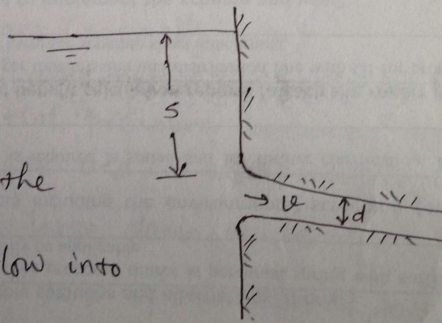 S
the
v
d
low into